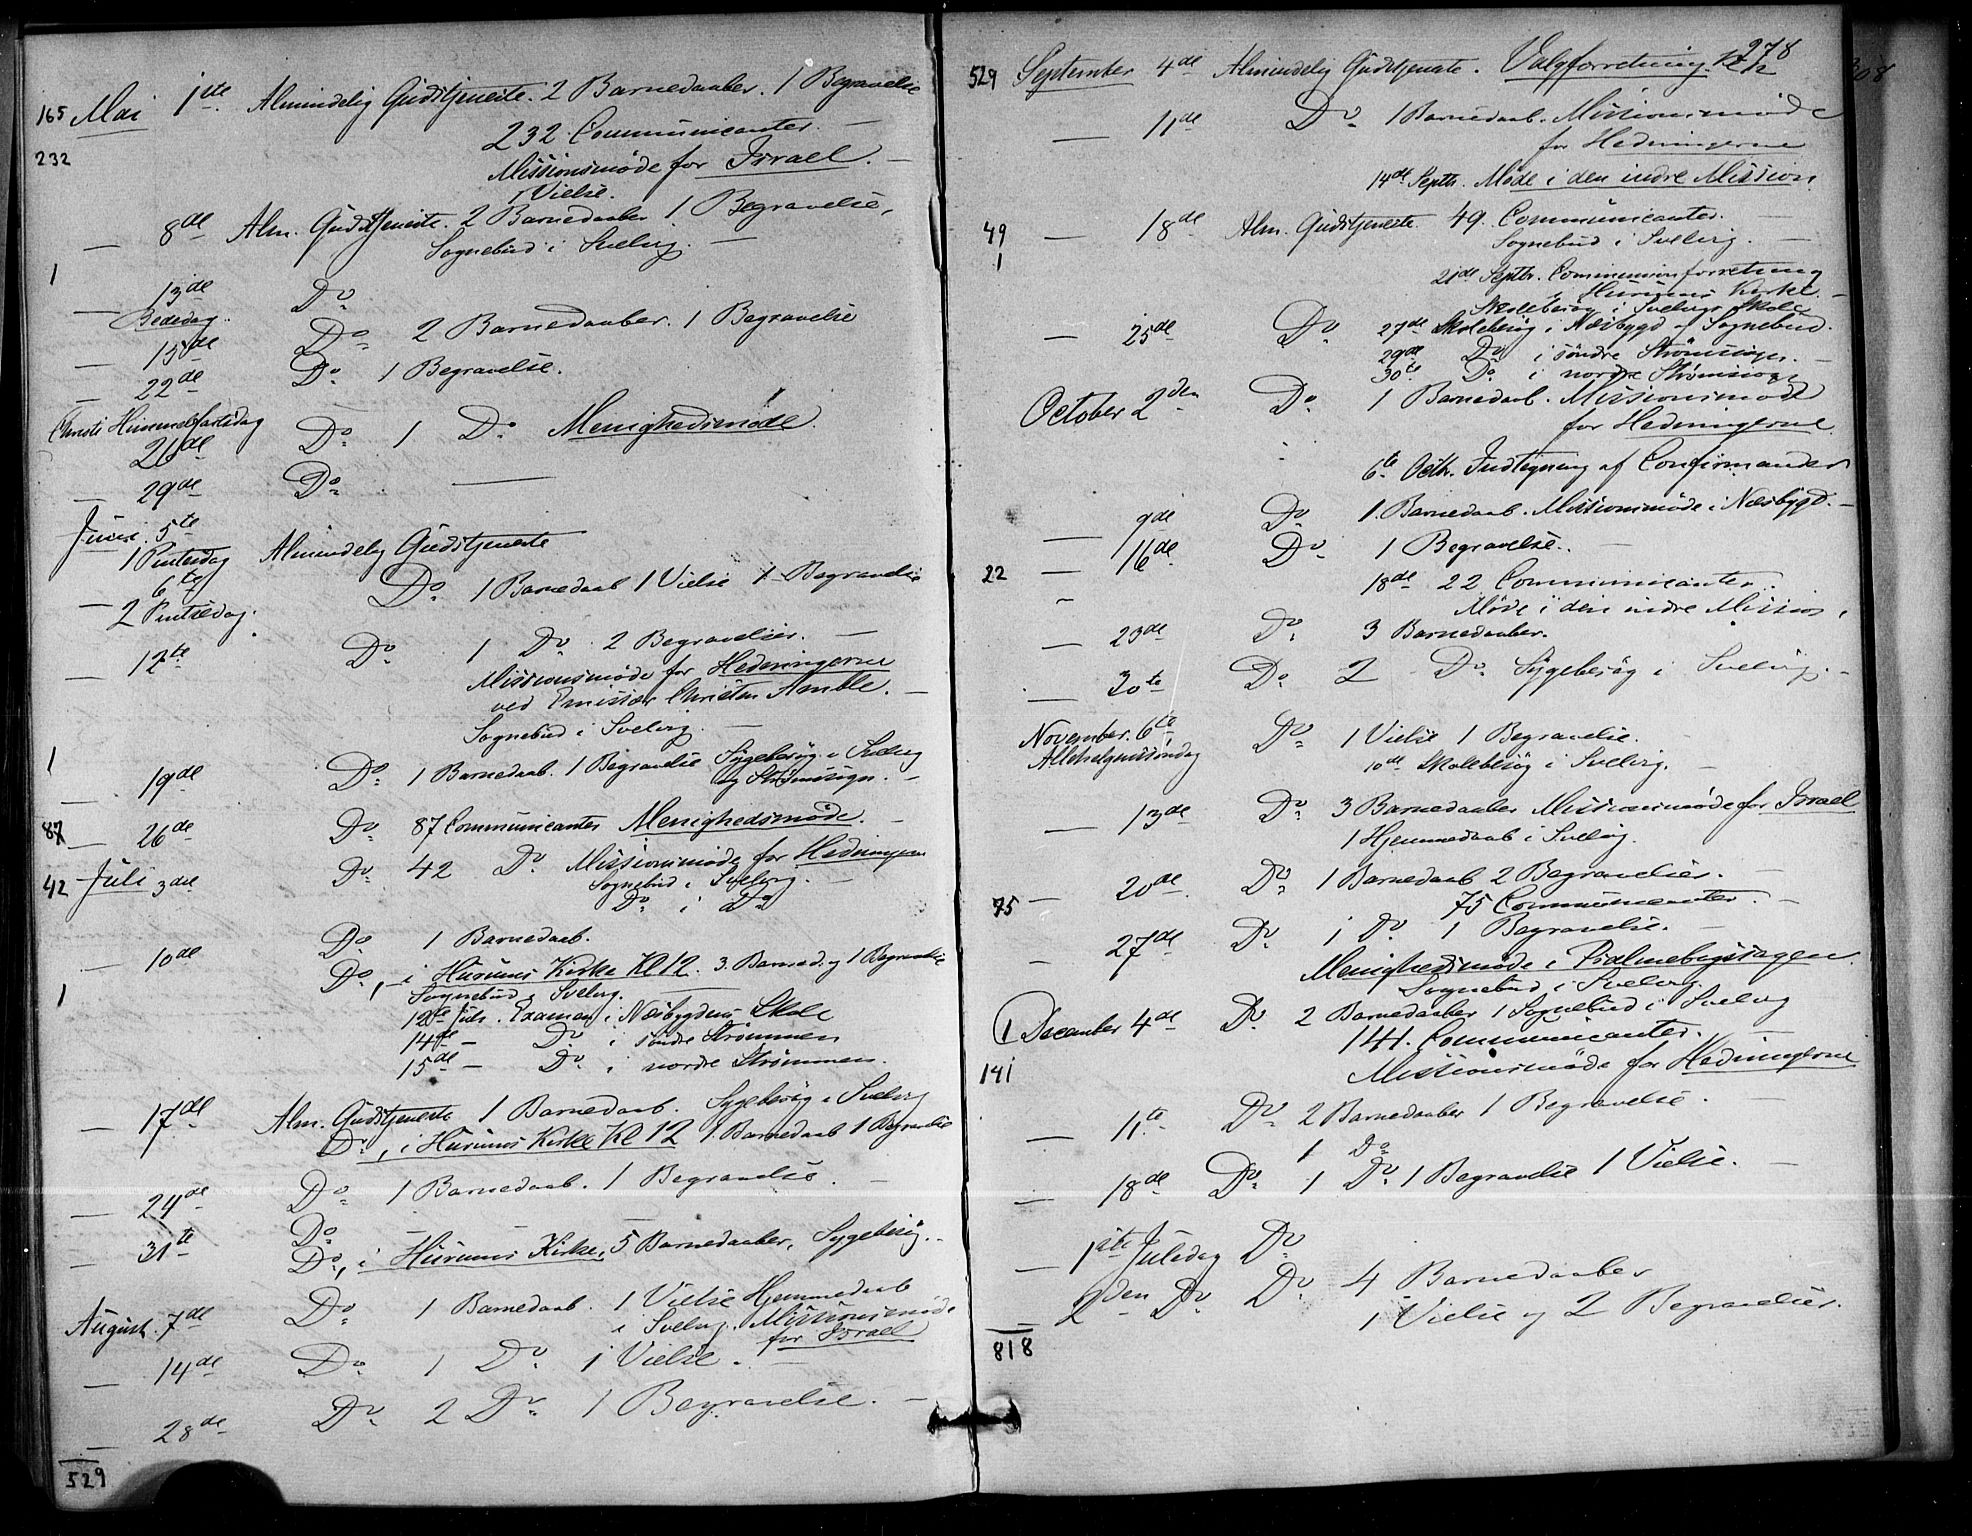 165 Mai 1ste Almindelig Gudstjeneste. 2 Barnedaaber. 1 Begravelse
232 Communicanter. —
232
Missionsmøde for Israel. —
1 Vielse.
— 8de Alm. Gudstjeneste. 2 Barnedaaber 1 Begravelse,
Sognebud i Svelvig. —
1
— 13de Do
Bededag.
— 15de Do 2 Barnedaaber. 1 Begravelse
— 22de Do 1 Begravelse.
Christi Himmelfartsdag
26de Do 1 Do Menighedsmøde.
— 29de Do —
Juni. 5te
1 Pintsedag Almindelig Gudstjeneste
— 6te Do 1 Barnedaab 1 Vielse 1 Begravelse
2 Pintsedag.
12te Do 1 Do 2 Begravelser. —
Missionsmøde for Hedningerne
ved Emissær Christen Amble. —
Sognebud i Svelvig. —
1
— 19de Do 1 Barnedaab. 1 Begravelse Sygebesøg i Svelvig
og Strømmen. —
87 — 26de Do 87 Communicanter Menighedsmøde. —
42 Juli 3die Do 42 Do Missionsmøde for Hedningerne
Sognebud i Svelvig. —
Do i Do
— 10de Do 1 Barnedaab.
Do, i Hurums Kirke Kl 12. 3. Barned. og 1 Begravelse
1
Sognebud i Svelvig.
12te Juli. Examen i Næsbygdens Skole
14de — Do i søndre Strømmen
15de — Do i nordre Strømmen.
— 17de Alm. Gudstjeneste 1 Barnedaab. Sygebesøg i Svelvig
Do, i Hurums Kirke Kl 12 1. Barnedaab 1 Begravelse
— 24de Do 1 Barnedaab. 1 Begravelse. —
— 31te Do —
Do, i Hurums Kirke, 5 Barnedaaber, Sygebesøg. —
August. 7de Do 1 Barnedaab. 1 Vielse Hjemmedaab
i Svelvig. Missionsmøde
for Israel
— 14de Do 1 Do 1 Vielse. —
— 28de Do 2 Do 1 Begravelse. —
529
278
308
529 September 4de Almindelig Gudstjeneste. Valgforretning
— 11de Do 1 Barnedaab. Missionsmøde
for Hedningerne
14de Septb. Møde i den indre Mission
49 — 18de Alm. Gudstjeneste 49. Communicanter.
1
Sognebud i Svelvig. —
21de Septb. Communionforretning
i Hurums Kirke. —
Skolebesøg i Svelvigs Skole
— 25de Do 27de Skolebesøg i Næsbygd og Sognebud.
29de Do i søndre Strømmen. —
30te Do i nordre Strømmen
October 2den Do 1 Barnedaab. Missionsmøde
for Hedningerne
6te Octb. Indtegning af Confirmander
— 9de Do 1. Barnedaab. Missionsmøde i Næsbygd. —
— 16de Do 1 Begravelse. —
22
18de 22 Communicanter.
Møde i den indre Mission.
— 23de Do 3 Barnedaaber.
— 30te Do 2 Do Sygebesøg i Svelvig. —
November. 6te Do 1 Vielse 1 Begravelse.
Allehelgenssøndag
10de Skolebesøg i Svelvig. —
— 13de Do 3 Barnedaaber Missionsmøde for Israel
1 Hjemmedaab i Svelvig.
— 20de Do 1 Barnedaab 2 Begravelser. —
75
75 Communicanter. —
— 27de Do 1 Do 1 Begravelse. —
Menighedsmøde i Psalmebogssagen.
Sognebud i Svelvig.
1 December 4de Do 2 Barnedaaber 1 Sognebud i Svelvig
141. Communicanter. —
141
Missionsmøde for Hedningerne
— 11te Do 2 Barnedaaber 1 Begravelse. —
1 Do
— 18de Do 1 Do 1 Begravelse 1 Vielse. —
— 1ste Juledag Do
— 2den Do Do 4 Barnedaaber
1 Vielse og 2 Begravelser.
818